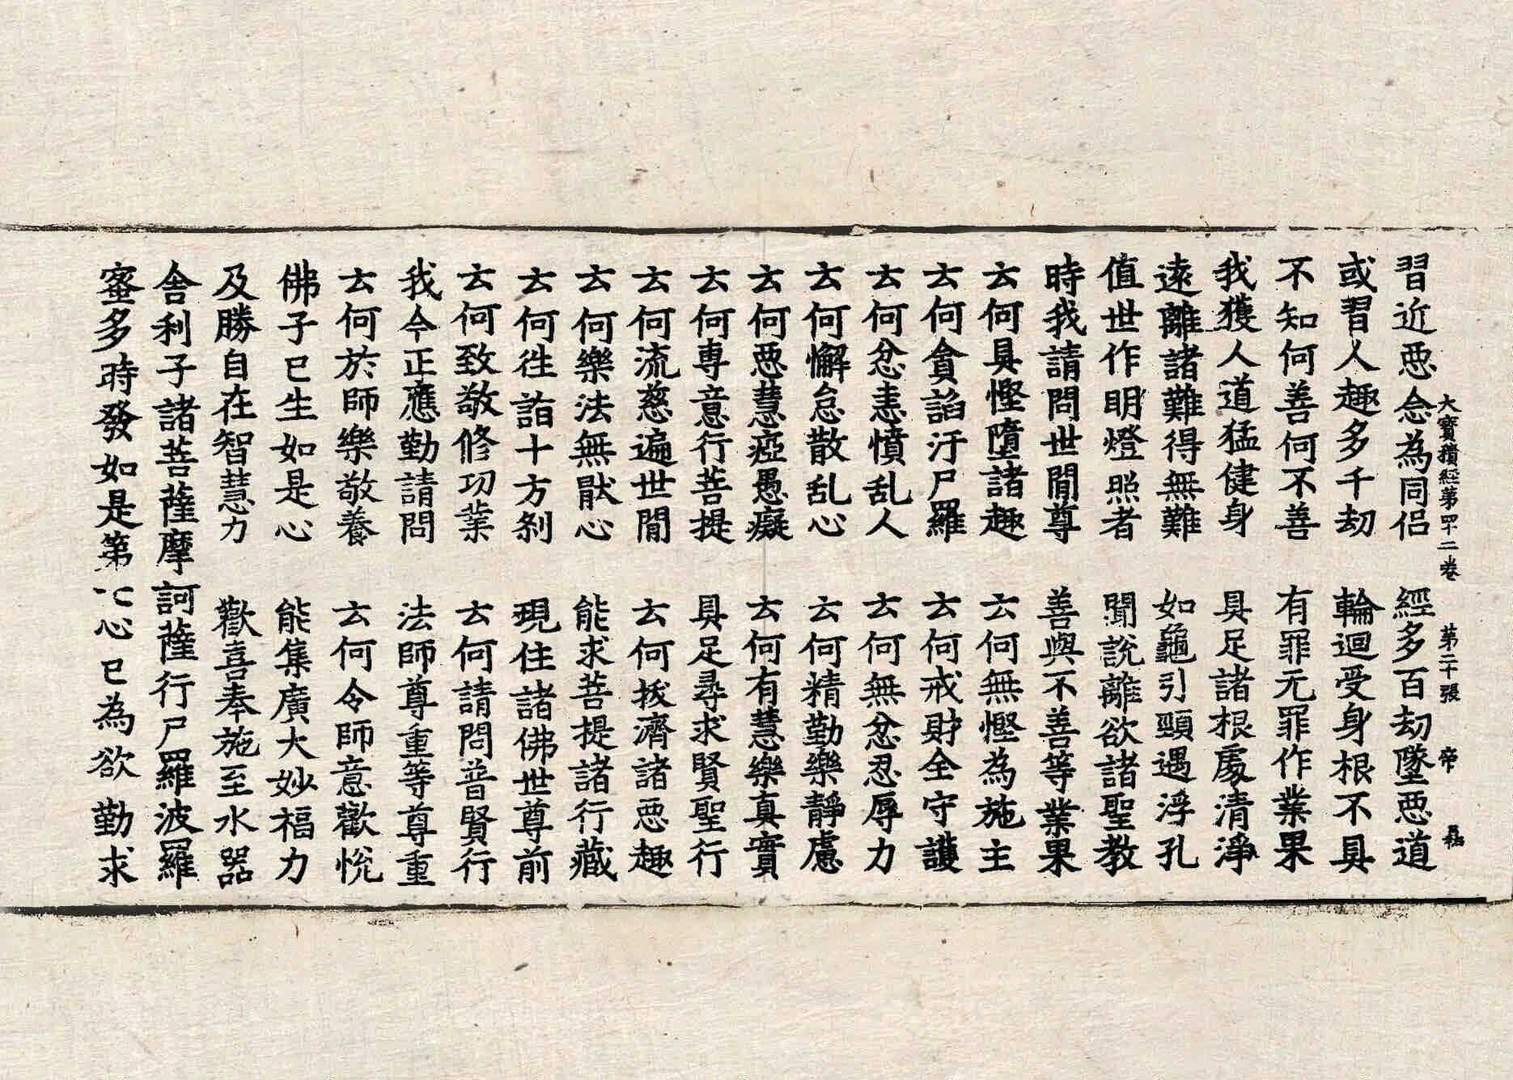 大寶積經第四十二卷 第二十張 帝
習近惡念為同侶 經多百劫墜惡道
或習人趣多千劫 輪迴受身根不具
不知何善何不善 有罪无罪作業果
我獲人道猛健身 具足諸根處清淨
遠離諸難得無難 如龜引頸遇浮孔
值世作明燈照者 聞說離欲諸聖教
時我請問世間尊 善與不善等業果
云何具慳墮諸趣 云何無慳為施主
云何貪諂汙尸羅 云何戒財全守護
云何忿恚憤乱人 云何無忿忍辱力
云何懈怠散乱心 云何精勤樂靜慮
云何惡慧瘂愚癡 云何有慧樂真實
云何專意行菩提 具足尋求賢聖行
云何流慈遍世間 云何拔濟諸惡趣
云何樂法無猒心 能求菩提諸行藏
云何往詣十方刹 現住諸佛世尊前
云何致敬修功業 云何請問普賢行
我今正應勤請問 法師尊重等尊重
云何於師樂敬養 云何令師意歡悅
佛子已生如是心 能集廣大妙福力
及勝自在智慧力 歡喜奉施至水器
舍利子諸菩薩摩訶薩行尸羅波羅
蜜多時發如是第七心已為欲勤求